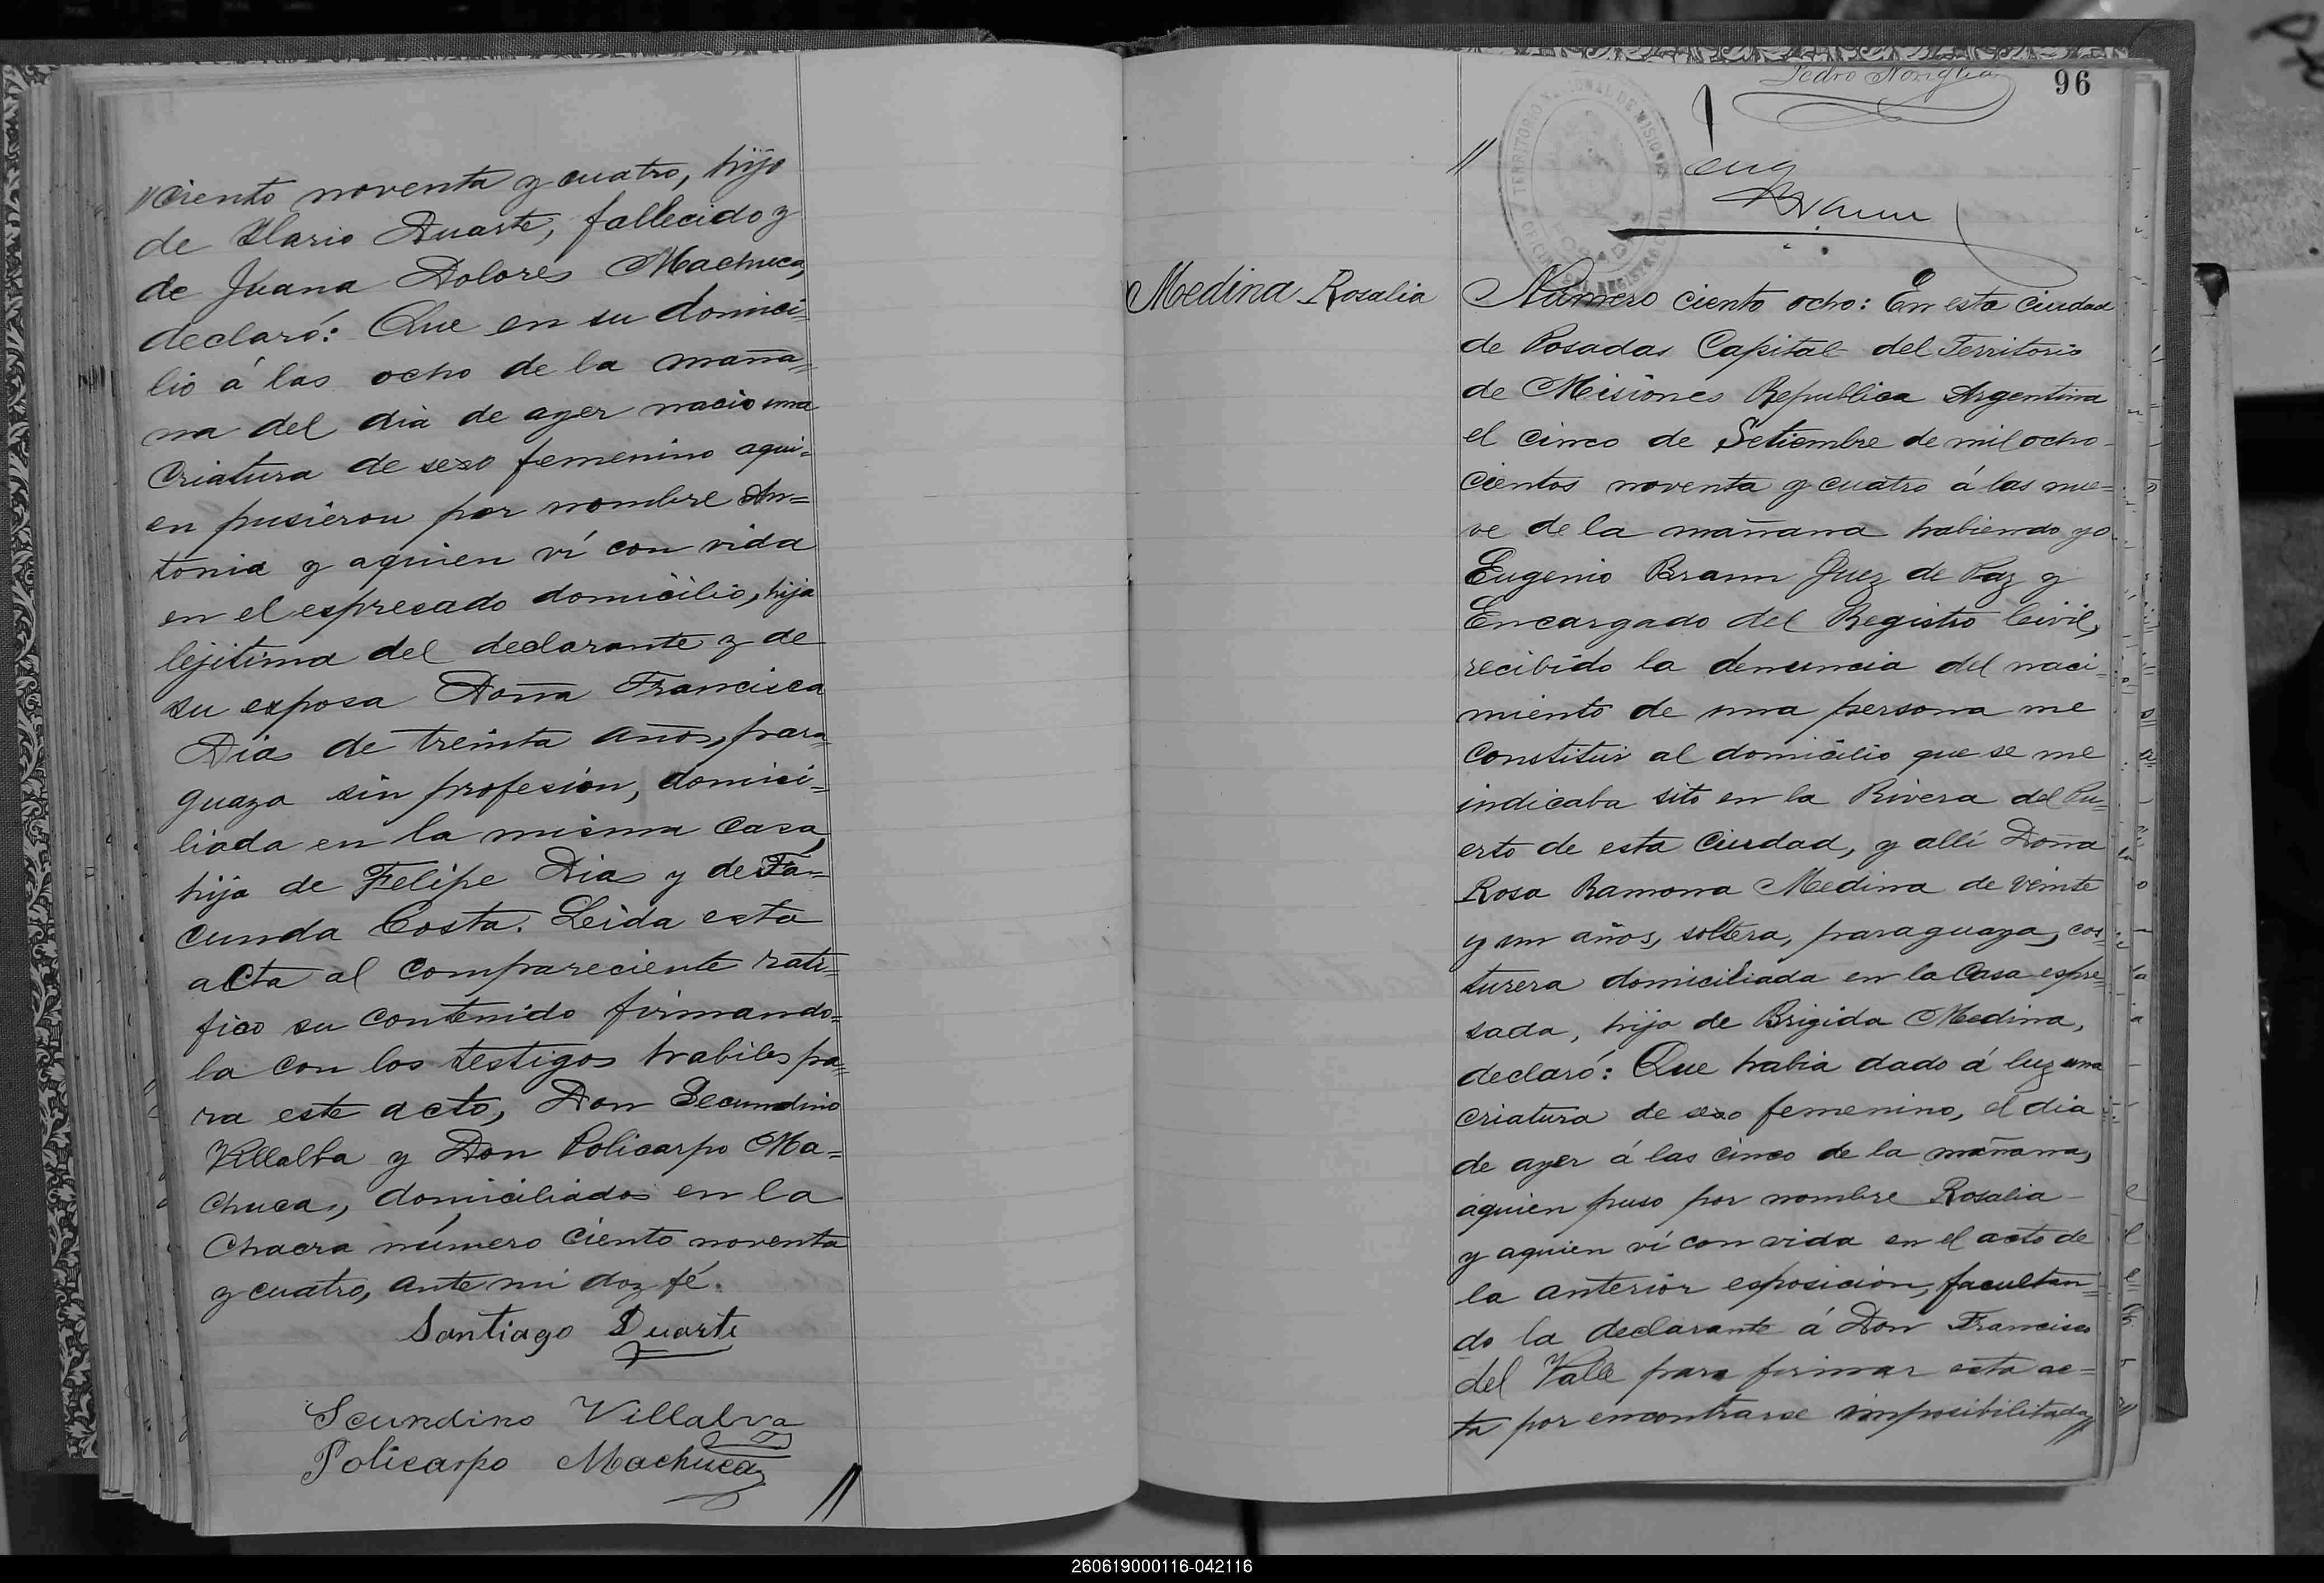 //ciento noventa y cuatro, hijo
de Ilario Duarte, fallecido y
de Juana Dolores Machuca,
declaró: Que en su domici=
lio á las ocho de la maña=
na del dia de ayer nacio una
criatura de sexo femenino aqui=
en pusieron por nombre An=
tonia y aquien ví con vida
en el espresado domicilio, hija
lejitima del declarante y de
su esposa Doña Francisca
Dias de treinta años, para=
guaya sin profesion, domici=
liada en la misma casa,
hija de Felipe Dias y de Fa=
cunda Costa. Leida esta
acta al compareciente rati=
fico su contenido firmando=
la con los testigos habiles pa=
ra este acto, Don Secundino
Villalba y Don Policarpo Ma=
chuca, domiciliados en la
Chacra número ciento noventa
y cuatro, ante mi doy fé.
Santiago Duarte
Scundino Villalva
Policarpo Machuca
//
96
Pedro
//
TERRITORIO NACIONAL DE MISIONES
POSADAS
Eug
Braun
Medina Rosalia
Número ciento ocho: En esta ciudad
de Posadas Capital del Territorio
de Misiones Republica Argentina
el cinco de Setiembre de mil ocho
cientos noventa y cuatro á las nue=
ve de la mañana habiendo yo
Eugenio Braun Juez de Paz y
Encargado del Registro Civil,
recibido la denuncia del naci=
miento de una persona me
constitui al domicilio que se me
indicaba sito en la Rivera del Pu=
erto de esta Ciudad, y allí Doña
Rosa Ramona Medina de veinte
y un años, soltera, paraguaya, cos=
turera domiciliada en la Casa espre
sada, hija de Brigida Medina,
declaró: Que habia dado á luz una
criatura de sexo femenino, el dia
de ayer á las cinco de la mañana,
aquien puso por nombre Rosalia
y aquien ví con vida en el acto de
la anterior esposicion, facultan=
do la declarante á Don Francisco
del Valle para firmar esta ac=
ta por encontrarse imposibilitada//
260619000116-042116